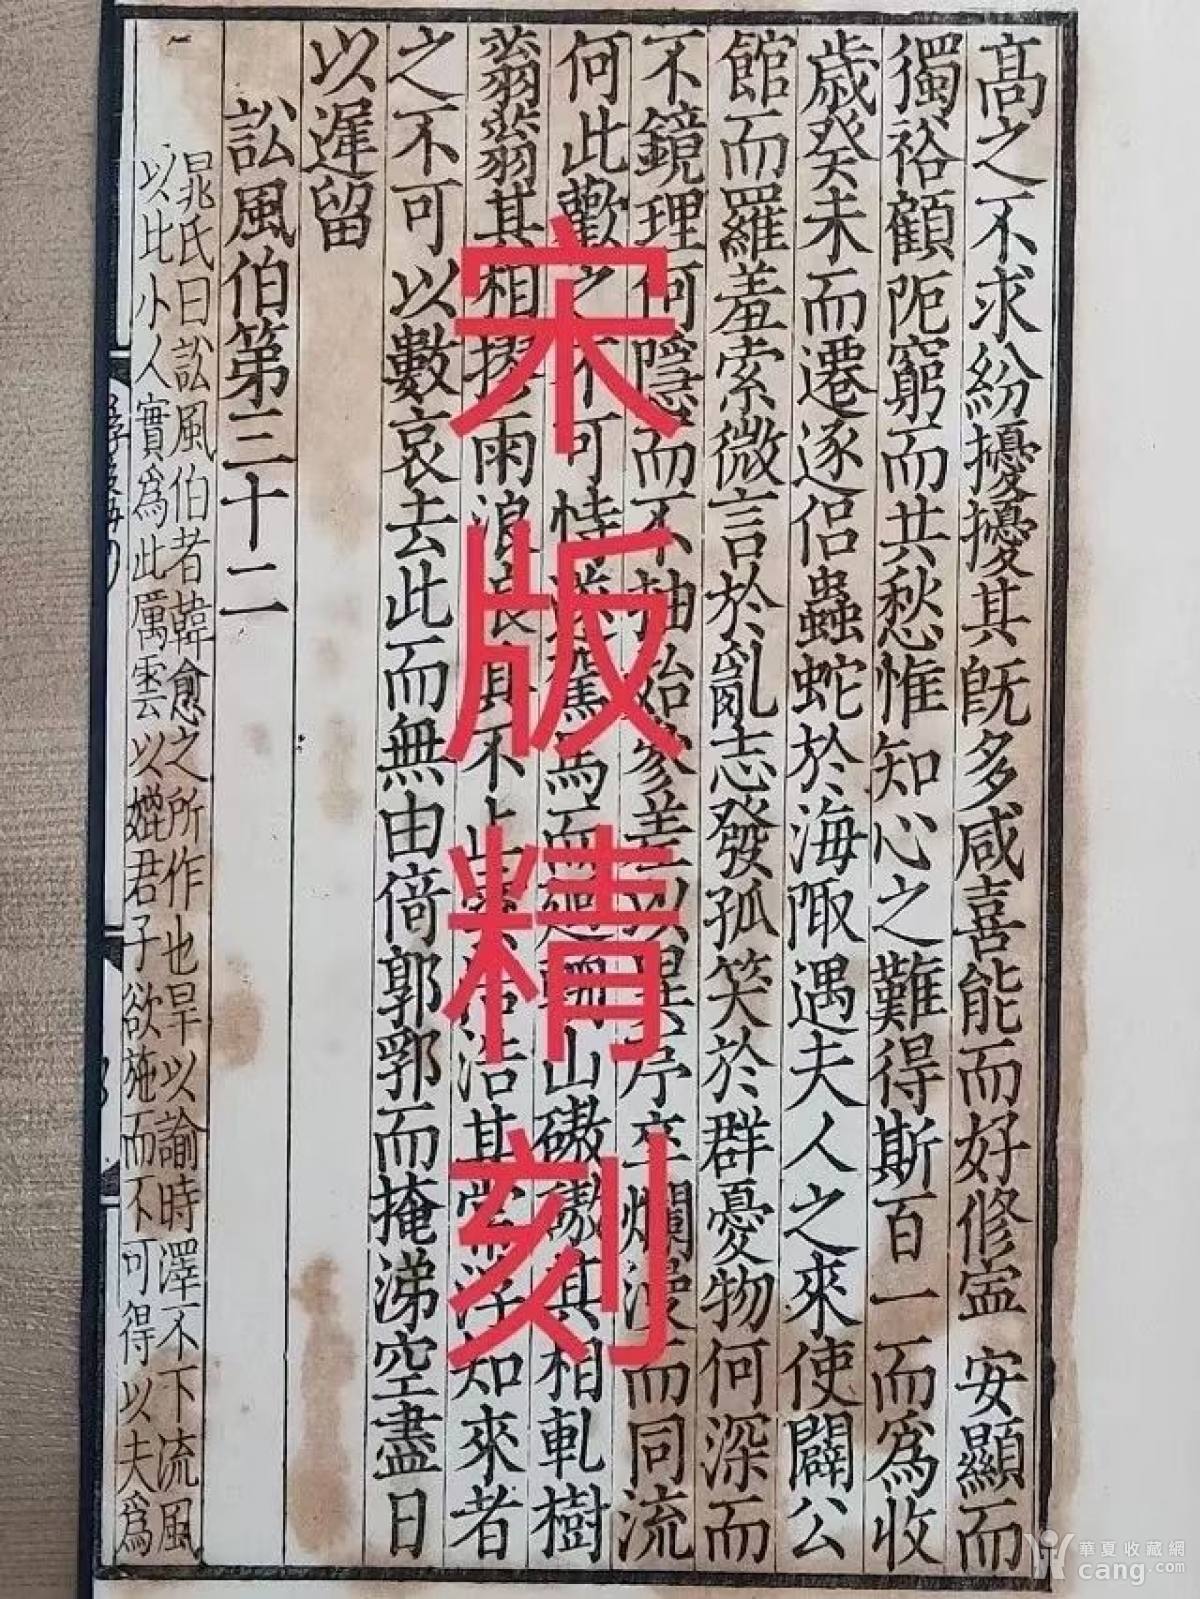 高之不求紛擾擾其旣多咸喜能而好修寍安顯而
獨裕顧阨窮而共愁惟知心之難得斯百一而爲收
歲癸未而遷逐侶蟲蛇於海陬遇夫人之來使闢公
館而羅羞索微言於亂志發孤笑於群憂物何深而
不鏡理何隱而不抽始參差以異序卒爛漫而同流
何此歡之不可恃遂駕馬而迴輈山磝磝其相軋樹
蓊蓊其相摎雨浪浪其不止雲浩浩其常浮知來者
之不可以數哀去此而無由倚郭郛而掩涕空盡日
以遲留
訟風伯第三十二
晁氏曰訟風伯者韓愈之所作也旱以諭時澤不下流風
以比小人實爲此厲雲以媲君子欲施而不可得以夫爲
宋版精刻
華夏收藏網
cang.com